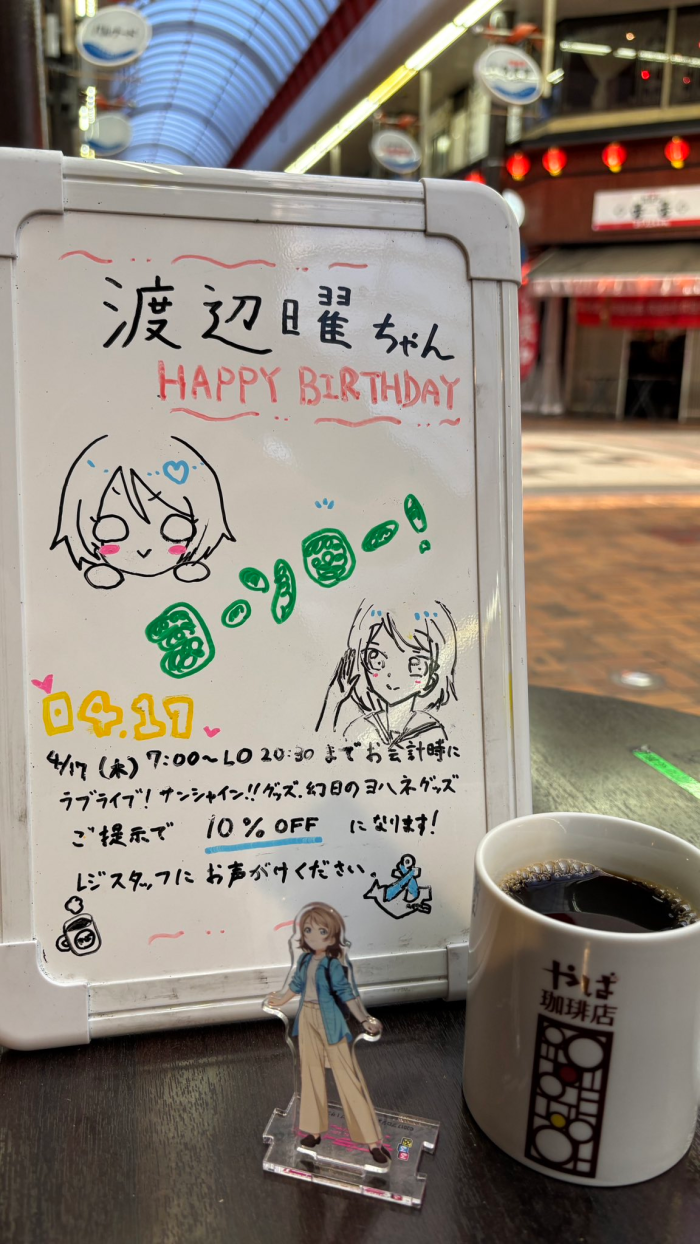 渡辺曜ちゃん
HAPPY BIRTHDAY
ヨーソロー!
04.17
4/17 (木) 7:00〜LO 20:30 までお会計時に
ラブライブ! サンシャイン!! グッズ、幻日のヨハネグッズ
ご提示で 10% OFF になります!
レジスタッフにお声がけください。
やば
珈琲店